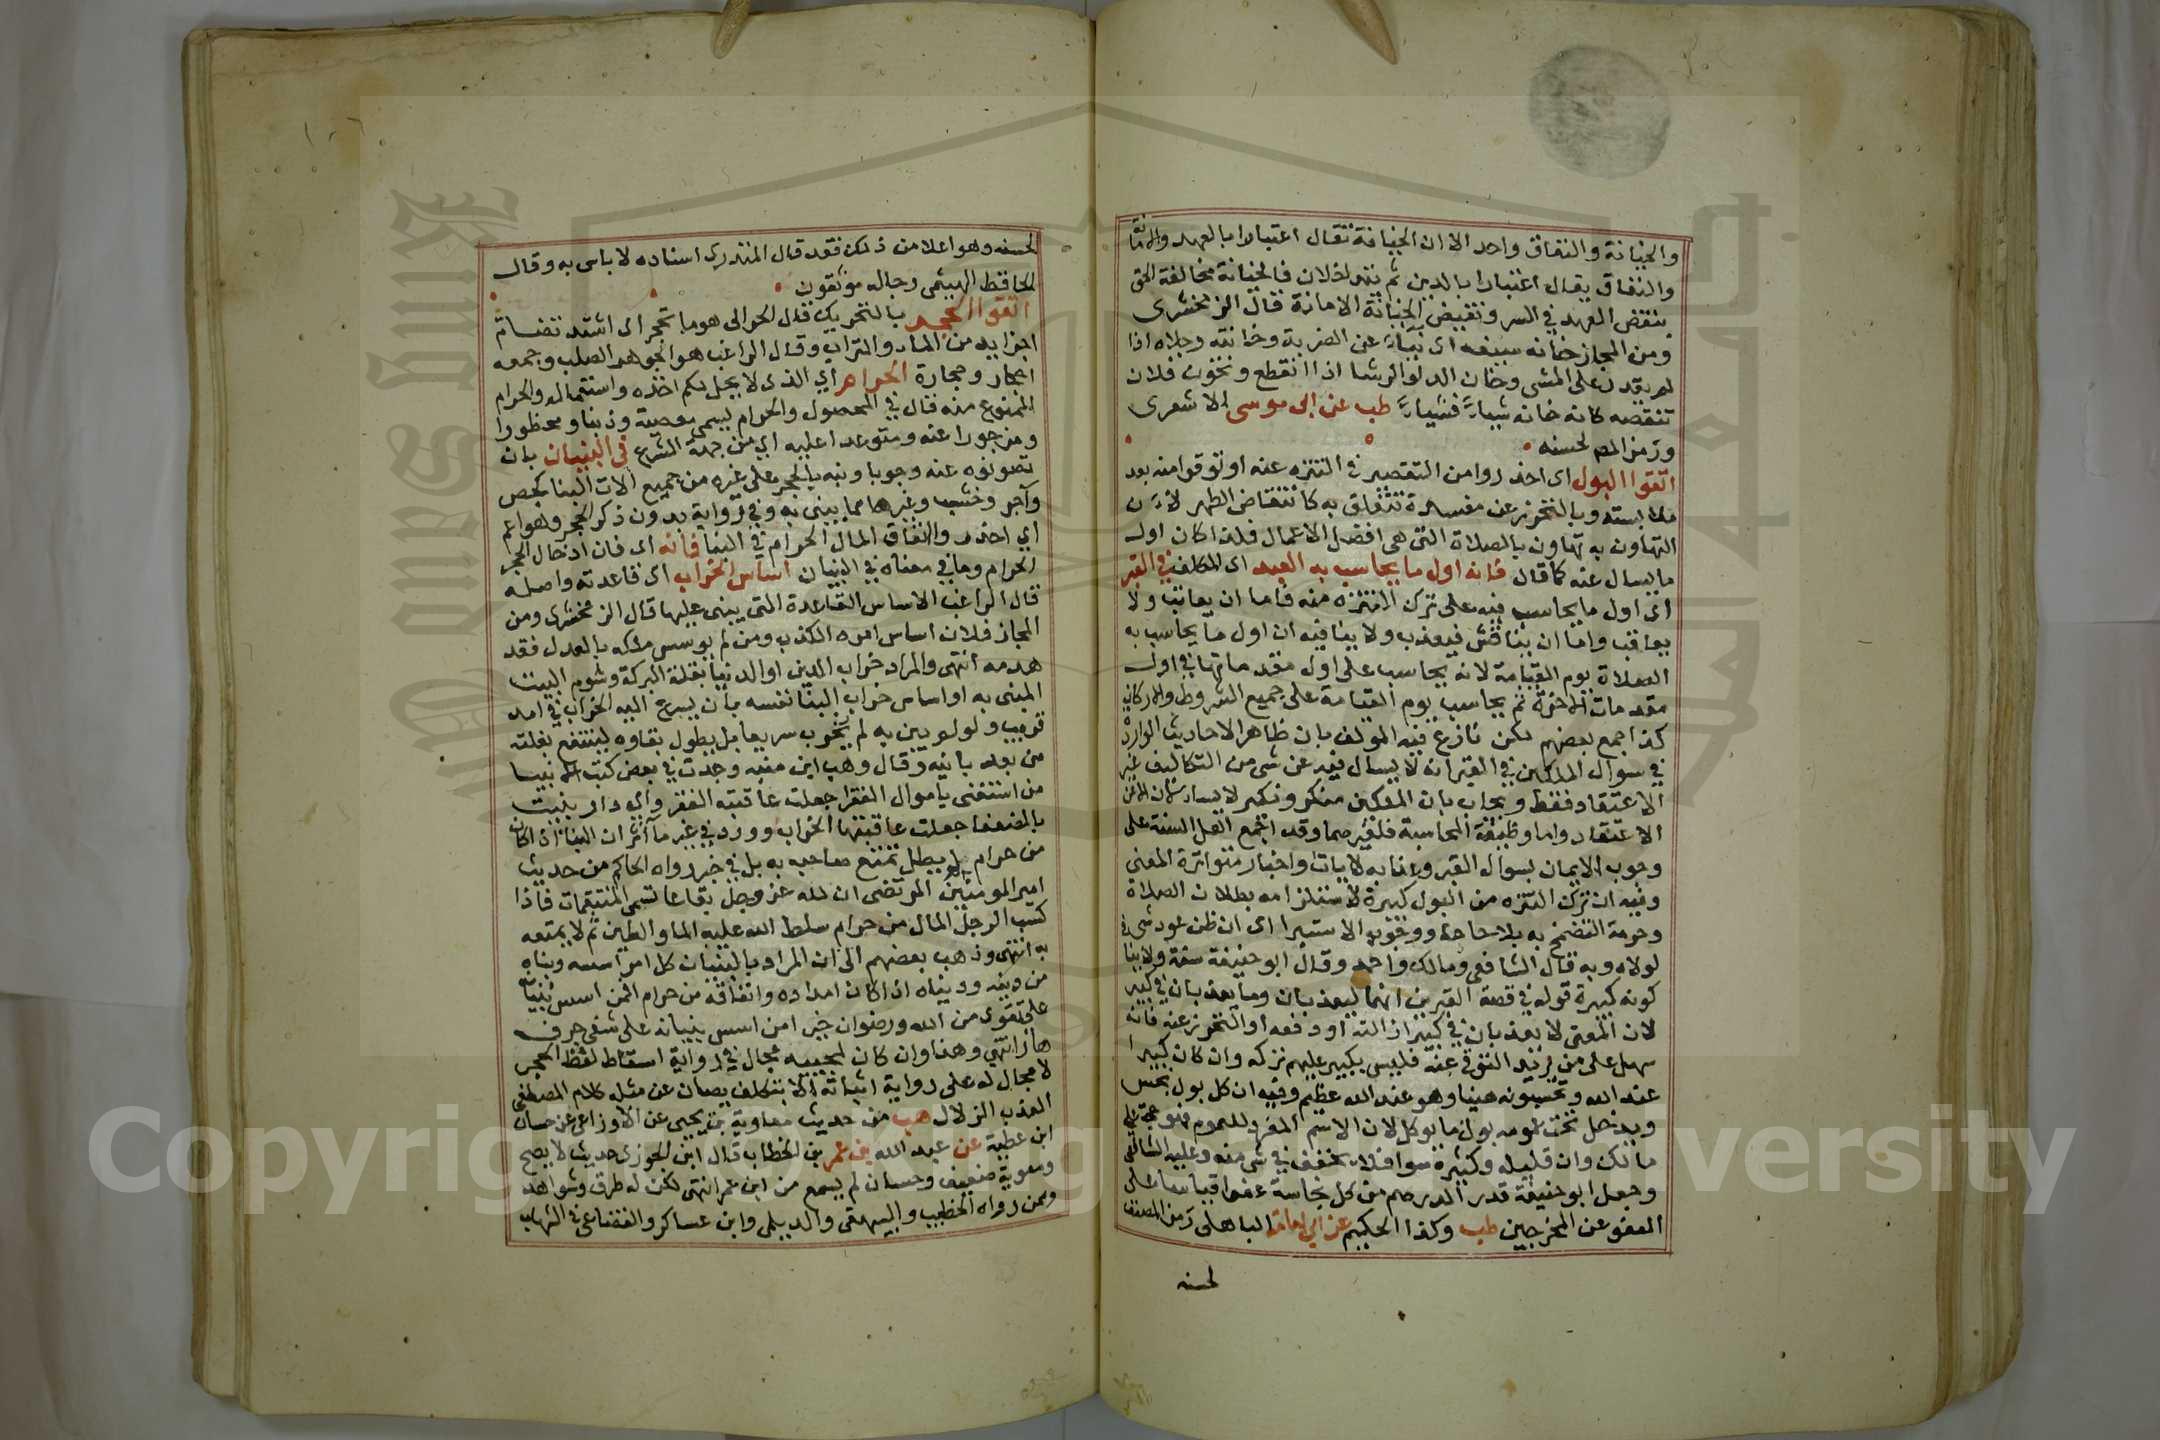 والخيانة والنفاق واحد الا ان الخيانة تقال اعتبارا بالعهد والامانة
والنفاق يقال اعتبارا بالدين ثم يتداخلان فالخيانة مخالفة الحق
بنقض العهد في السر ونقيض الخيانة الامانة قال الزمخشرى
ومن المجاز خانه سيفه اى نبا عن الضريبة وخانته رجلاه اذا
لم يقدر على المشى وخان الدلو الرشا اذا انقطع وتخون فلان
تنقصه كانه خانه شيا فشيا طب عن ابى موسى الاشعرى
ورمز المص لحسنه
اتقوا البول اى احذروا من التقصير في التنزه عنه او توقوا منه بعد
ملابسته وبالتحرز عن مفسدة تتعلق به كانتقاض الطهر لان
التهاون به تهاون بالصلاة التى هى افضل الاعمال فلذا كان اول
ما يسال عنه كما قال فانه اول ما يحاسب به العبد اى المكلف في القبر
اى اول ما يحاسب فيه على ترك التنزه منه فاما ان يعاتب ولا
يعاقب واما ان يناقش فيعذب ولا ينافيه ان اول ما يحاسب به
الصلاة يوم القيامة لانه يحاسب على اول مقدماتها في اول
مقدمات الاخرة ثم يحاسب يوم القيامة على جميع الشروط والاركان
كذا جمع بعضهم لكن نازع فيه المولف بان ظاهر الاحاديث الواردة
في سوال الملكين في القبر انه لا يسال فيه عن شى من التكاليف غير
الاعتقاد فقط ويجاب بان الملكين منكر ونكير لا يسالان الا عن
الاعتقاد واما وظيفة المحاسبة فلغيرهما وقد اجمع اهل السنة على
وجوب الايمان بسوال القبر وعذابه لايات واخبار متواترة المعنى
وفيه ان ترك التنزه من البول كبيرة لاستلزامه بطلان الصلاة
وحرمة التضمخ به بلا حاجة ووجوب الاستبرا اى ان ظن عود شى
لولاه وبه قال الشافعى ومالك واحمد وقال ابو حنيفة سنة ولا ينافى
كونه كبيرة قوله في قصة القبرين انهما ليعذبان وما يعذبان في كبير
لان المعنى لا يعذبان في كبير ازالته او دفعه او التحرز عنه فانه
سهل على من يريد التوقى عنه فليس بكبير عليهم تركه وان كان كبيرا
عند الله وتحسبونه هينا وهو عند الله عظيم وفيه ان كل بول نجس
ويدخل تحت عمومه بول ما يوكل لان الاسم المفرد للعموم فهو حجة على
مالك وان قليله وكثيره سوا فلا يخفف في شى منه وعليه الشافعى
وجعل ابو حنيفة قدر الدرهم من كل نجاسة عفوا قياسا على
العفو عن المخرجين طب وكذا الحكيم عن ابي امامة الباهلى رمز المصنف
لحسنه
لحسنه وهو اعلا من ذلك فقد قال المنذرى اسناده لا باس به وقال
الحافظ الهيثمى رجاله موثقون
اتقوا الحجر بالتحريك قال الحرالى هو ما تحجر اى اشتد تضام
اجزايه من الماء والتراب وقال الراغب هو الجوهر الصلب وجمعه
احجار وحجارة الحرام اي الذى لا يحل لكم اخذه واستعماله والحرام
الممنوع منه قال في المحصول والحرام يسمى معصية وذنبا ومحظورا
ومزجورا عنه ومتوعدا عليه اي من جهة الشرع في البنيان بان
تصونوه عنه وجوبا ونبه بالحجر على غيره من جميع الات البنا كجص
وآجر وخشب وغيرها مما يبنى به وفي رواية بدون ذكر الحجر وهو اعم
اي احذروا انفاق المال الحرام في البنا فانه اى فان ادخال الحجر
الحرام وما في معناه في البنيان اساس الخراب اى قاعدته واصله
قال الراغب الاساس القاعدة التى يبنى عليها قال الزمخشرى ومن
المجاز فلان اساس امره الكذب ومن لم يوسس ملكه بالعدل فقد
هدمه انتهى والمراد خراب الدين او الدنيا بقلة البركة وشوم البيت
المبنى به او اساس خراب البنا نفسه بان يسرع اليه الخراب في امد
قريب ولو لم يبن به لم يخرب سريعا بل يطول بقاوه لينتفع بغلته
من بعد بانيه وقال وهب ابن منبه وجدت في بعض كتب الانبيا
من استغنى باموال الفقرا جعلت عاقبته الفقر واى دار بنيت
بالضعفا جعلت عاقبتها الخراب وورد في غير ما اثر ان البنا اذا كان
من حرام لم يطل تمتع صاحبه به بل في خبر رواه الحاكم من حديث
امير المومنين المرتضى ان لله عز وجل بقاعا تسمى المنتقمات فاذا
كسب الرجل المال من حرام سلط الله عليه الما والطين ثم لا يمتعه
به انتهى وذهب بعضهم الى ان المراد بالبنيان كل امر اسسه وبناه
من دينه ودنياه اذا كان امداده وانفاقه من حرام افمن اسس بنيانه
على تقوى من الله ورضوان خير امن اسس بنيانه على شفى جرف
هار انتهى وهذا وان كان لمجيبه مجال في رواية اسقاط لفظ الحجر
لا مجال له على رواية اثباته الا بتكلف يصان عن مثله كلام المصطفى
العذب الزلال هب من حديث معاوية بن يحيى عن الاوزاعى عن حسان
ابن عطية عن عبد الله بن عمر بن الخطاب قال ابن الجوزى حديث لا يصح
ومعوية ضعيف وحسان لم يسمع من ابن عمر انتهى لكن له طرق وشواهد
وممن رواه الخطيب والبيهقى والديلى وابن عساكر والقضاعى في الشهاب
Copyright © King Saud University